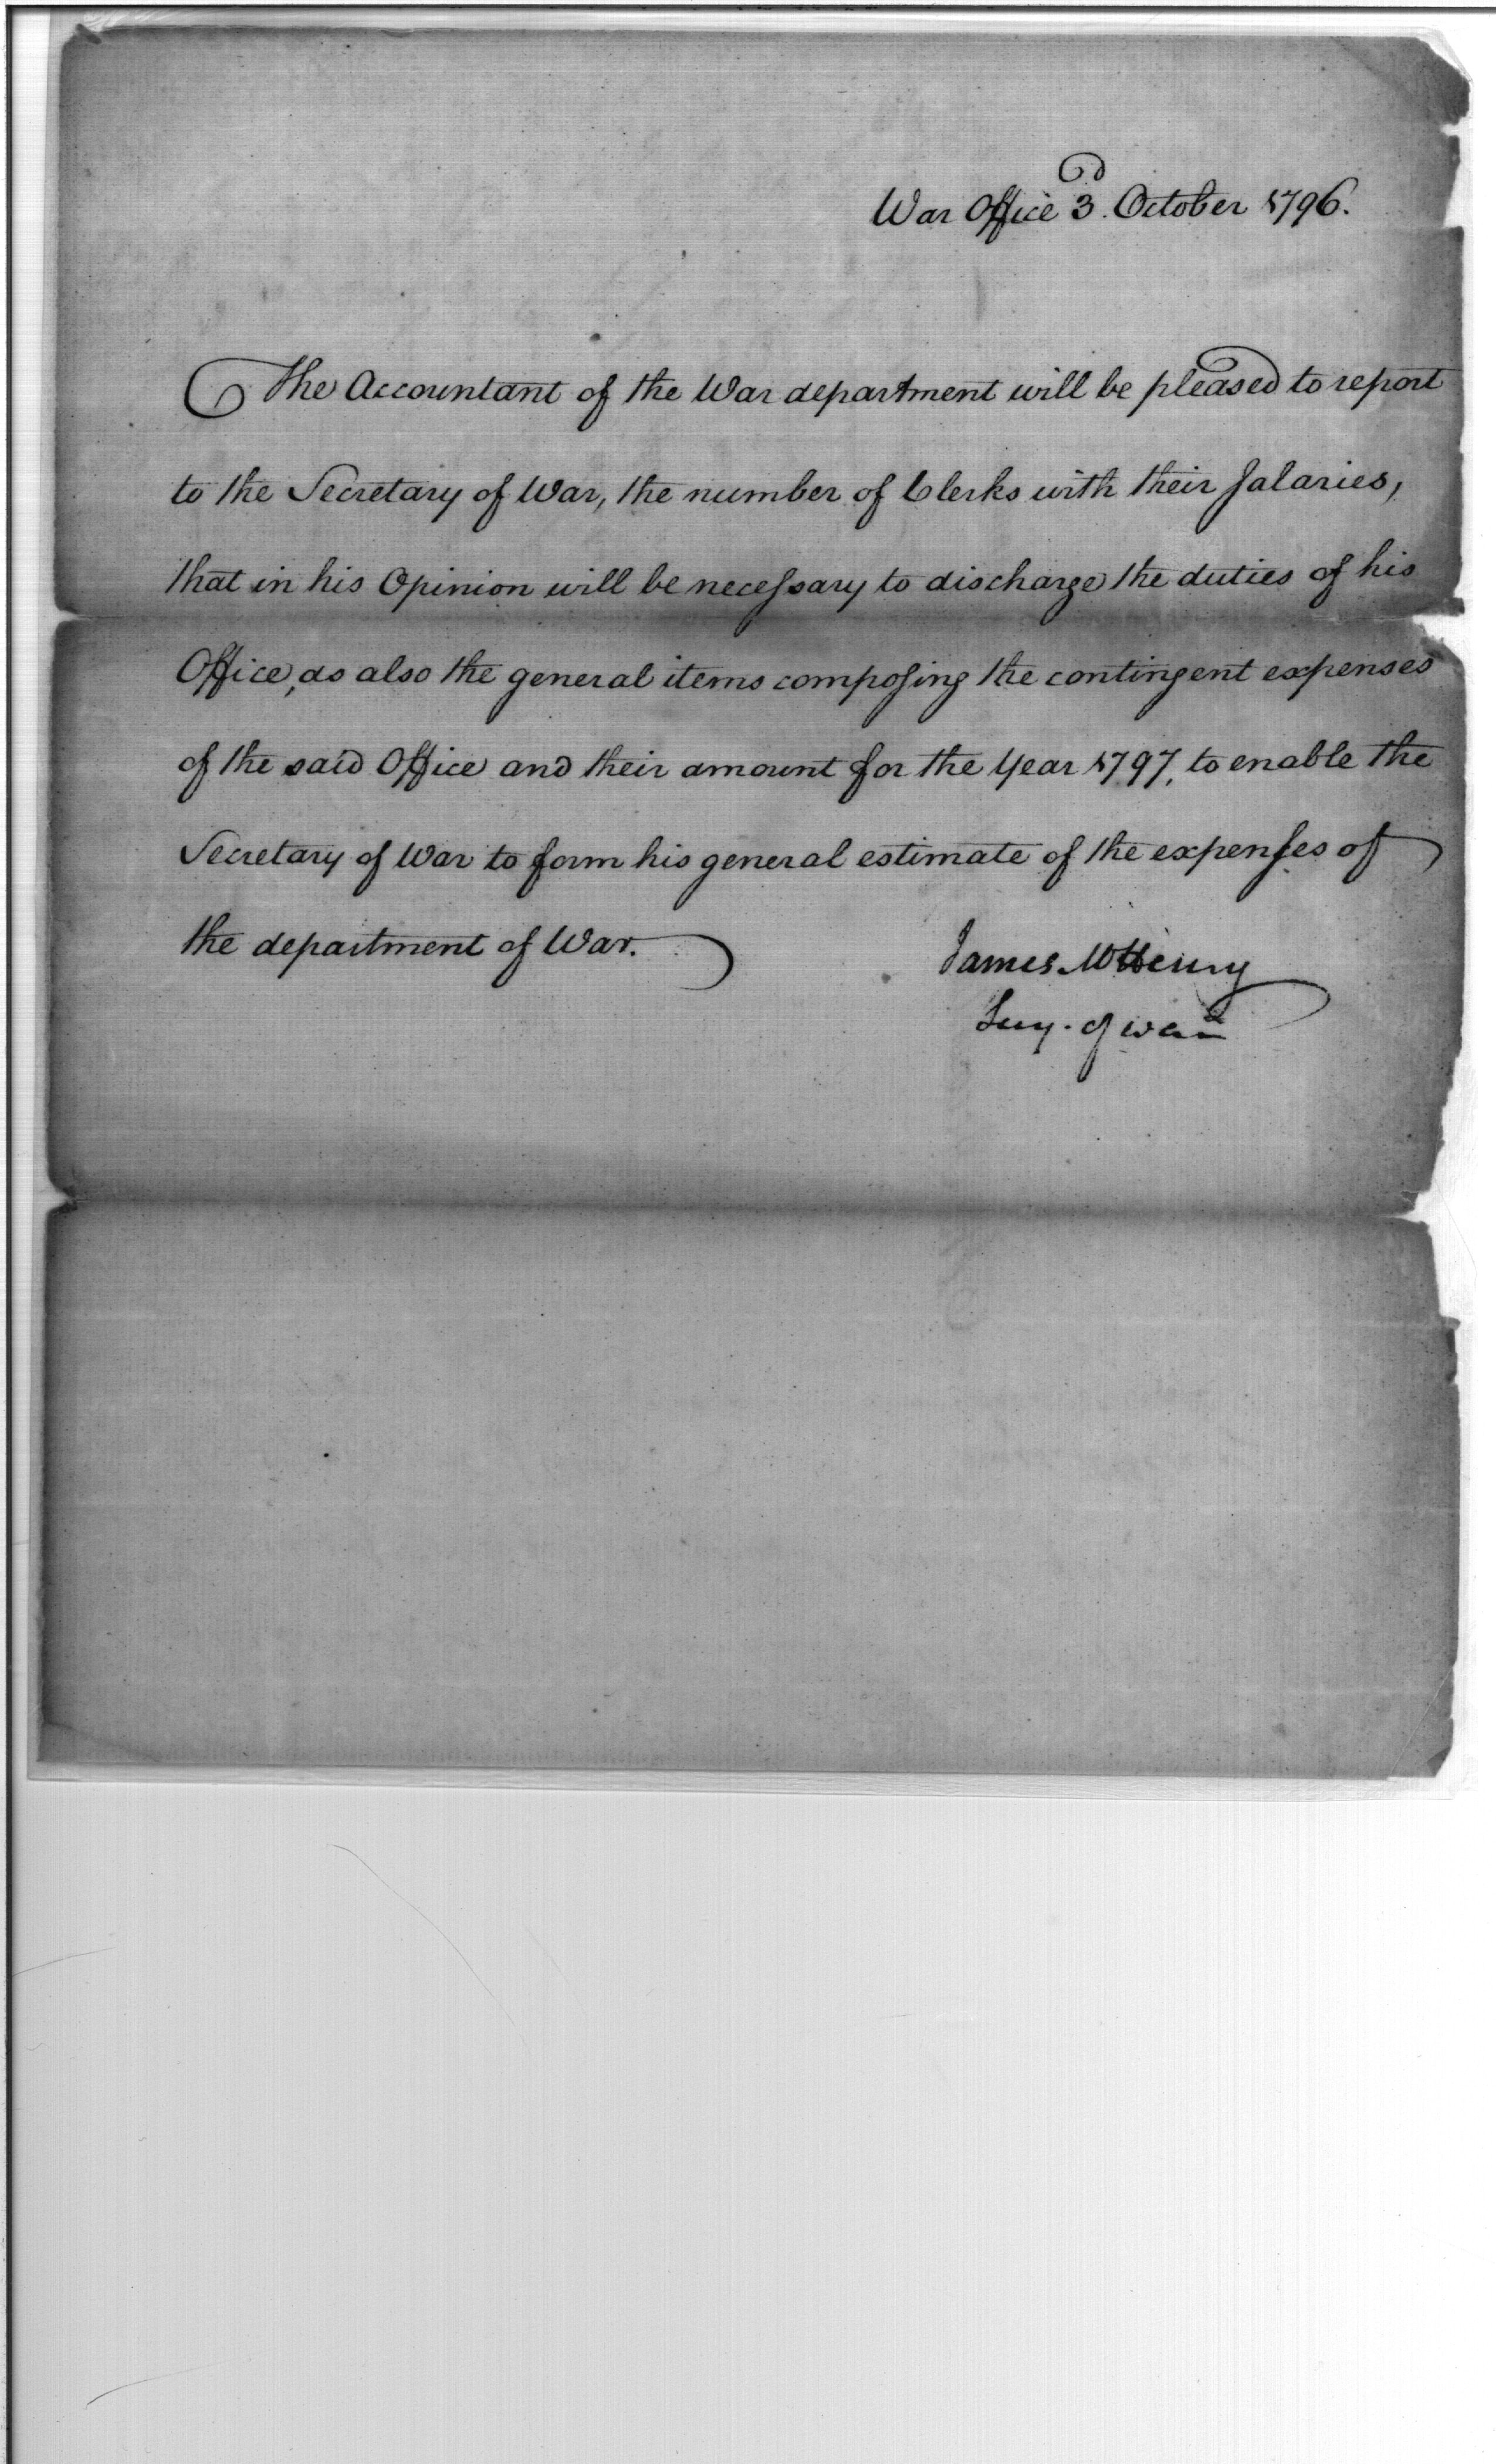 War Office 3d. October 1796.
The Accountant of the War department will be pleased to report
to the Secretary of War, the number of Clerks with their salaries,
that in his Opinion will be necessary to discharge the duties of his
Office, as also the general items composing the contingent expenses
of the said Office and their amount for the Year 1797, to enable the
Secretary of War to form his general estimate of the expenses of
the department of War.
James McHenry
Secy. of War